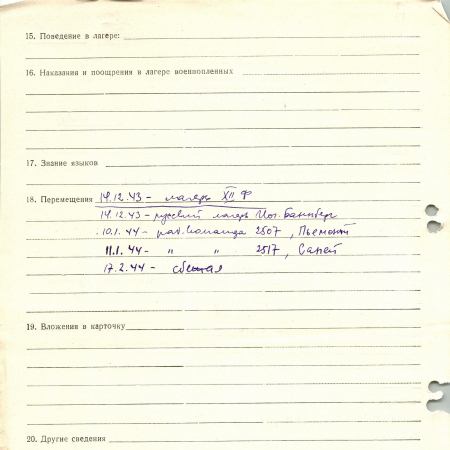 15. Поведение в лагере:
16. Наказания и поощрения в лагере военнопленных
17. Знание языков
18. Перемещения 14.12.43 – лагерь XII Ф
14.12.43 – русский лагерь Иог. Баннберг
10.1.44 – раб. команда 2507, Пьемонт
11.1.44 – " " 2517, Саней
17.2.44 –
19. Вложения в карточку
20. Другие сведения